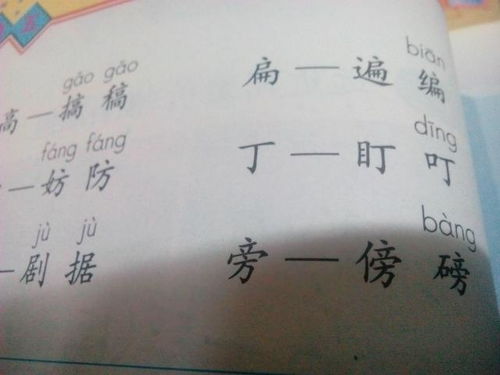 gǎo gǎo
高—搞 稿
fáng fáng
—妨 防
jù jù
—剧 据
biān
扁—遍 编
dīng
丁—盯 叮
bàng
旁—傍 磅